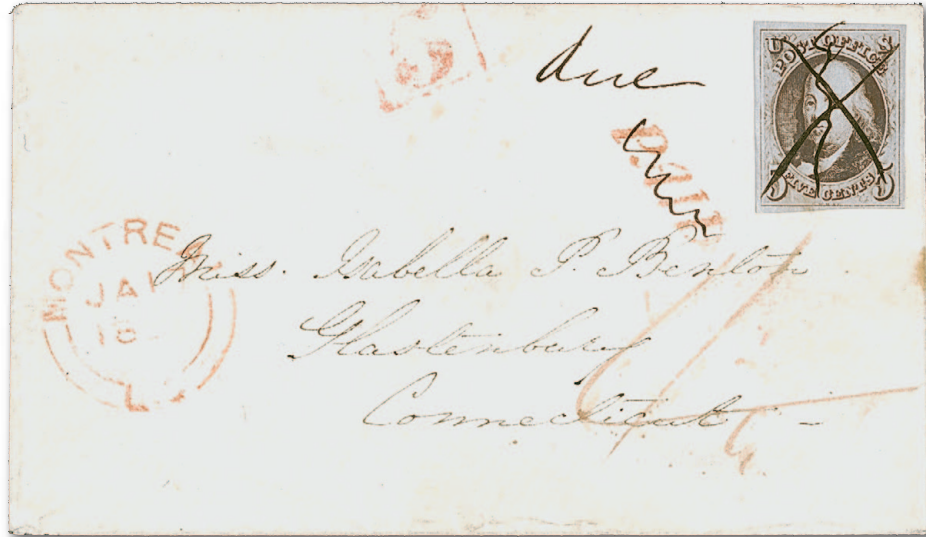 5
due
PAID
U S
POST OFFICE
FIVE CENTS
5 5
MONTREA
JA
18
L.C
Miss. Isabella P. Benton
Glastenbury
Connecticut